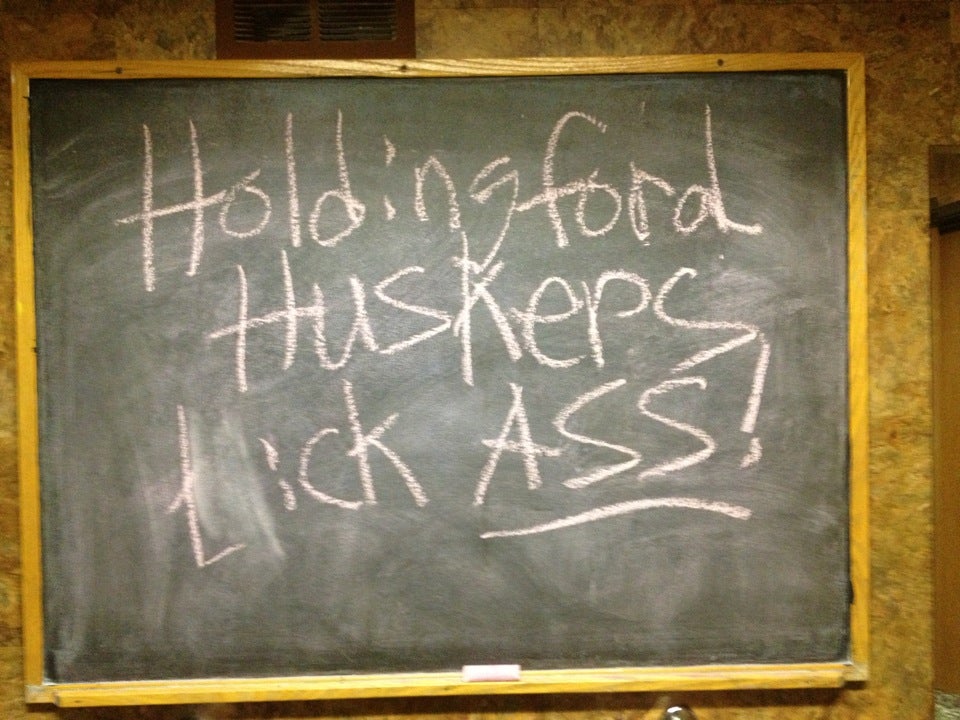 Holdingsford
Huskers
Lick ASS!